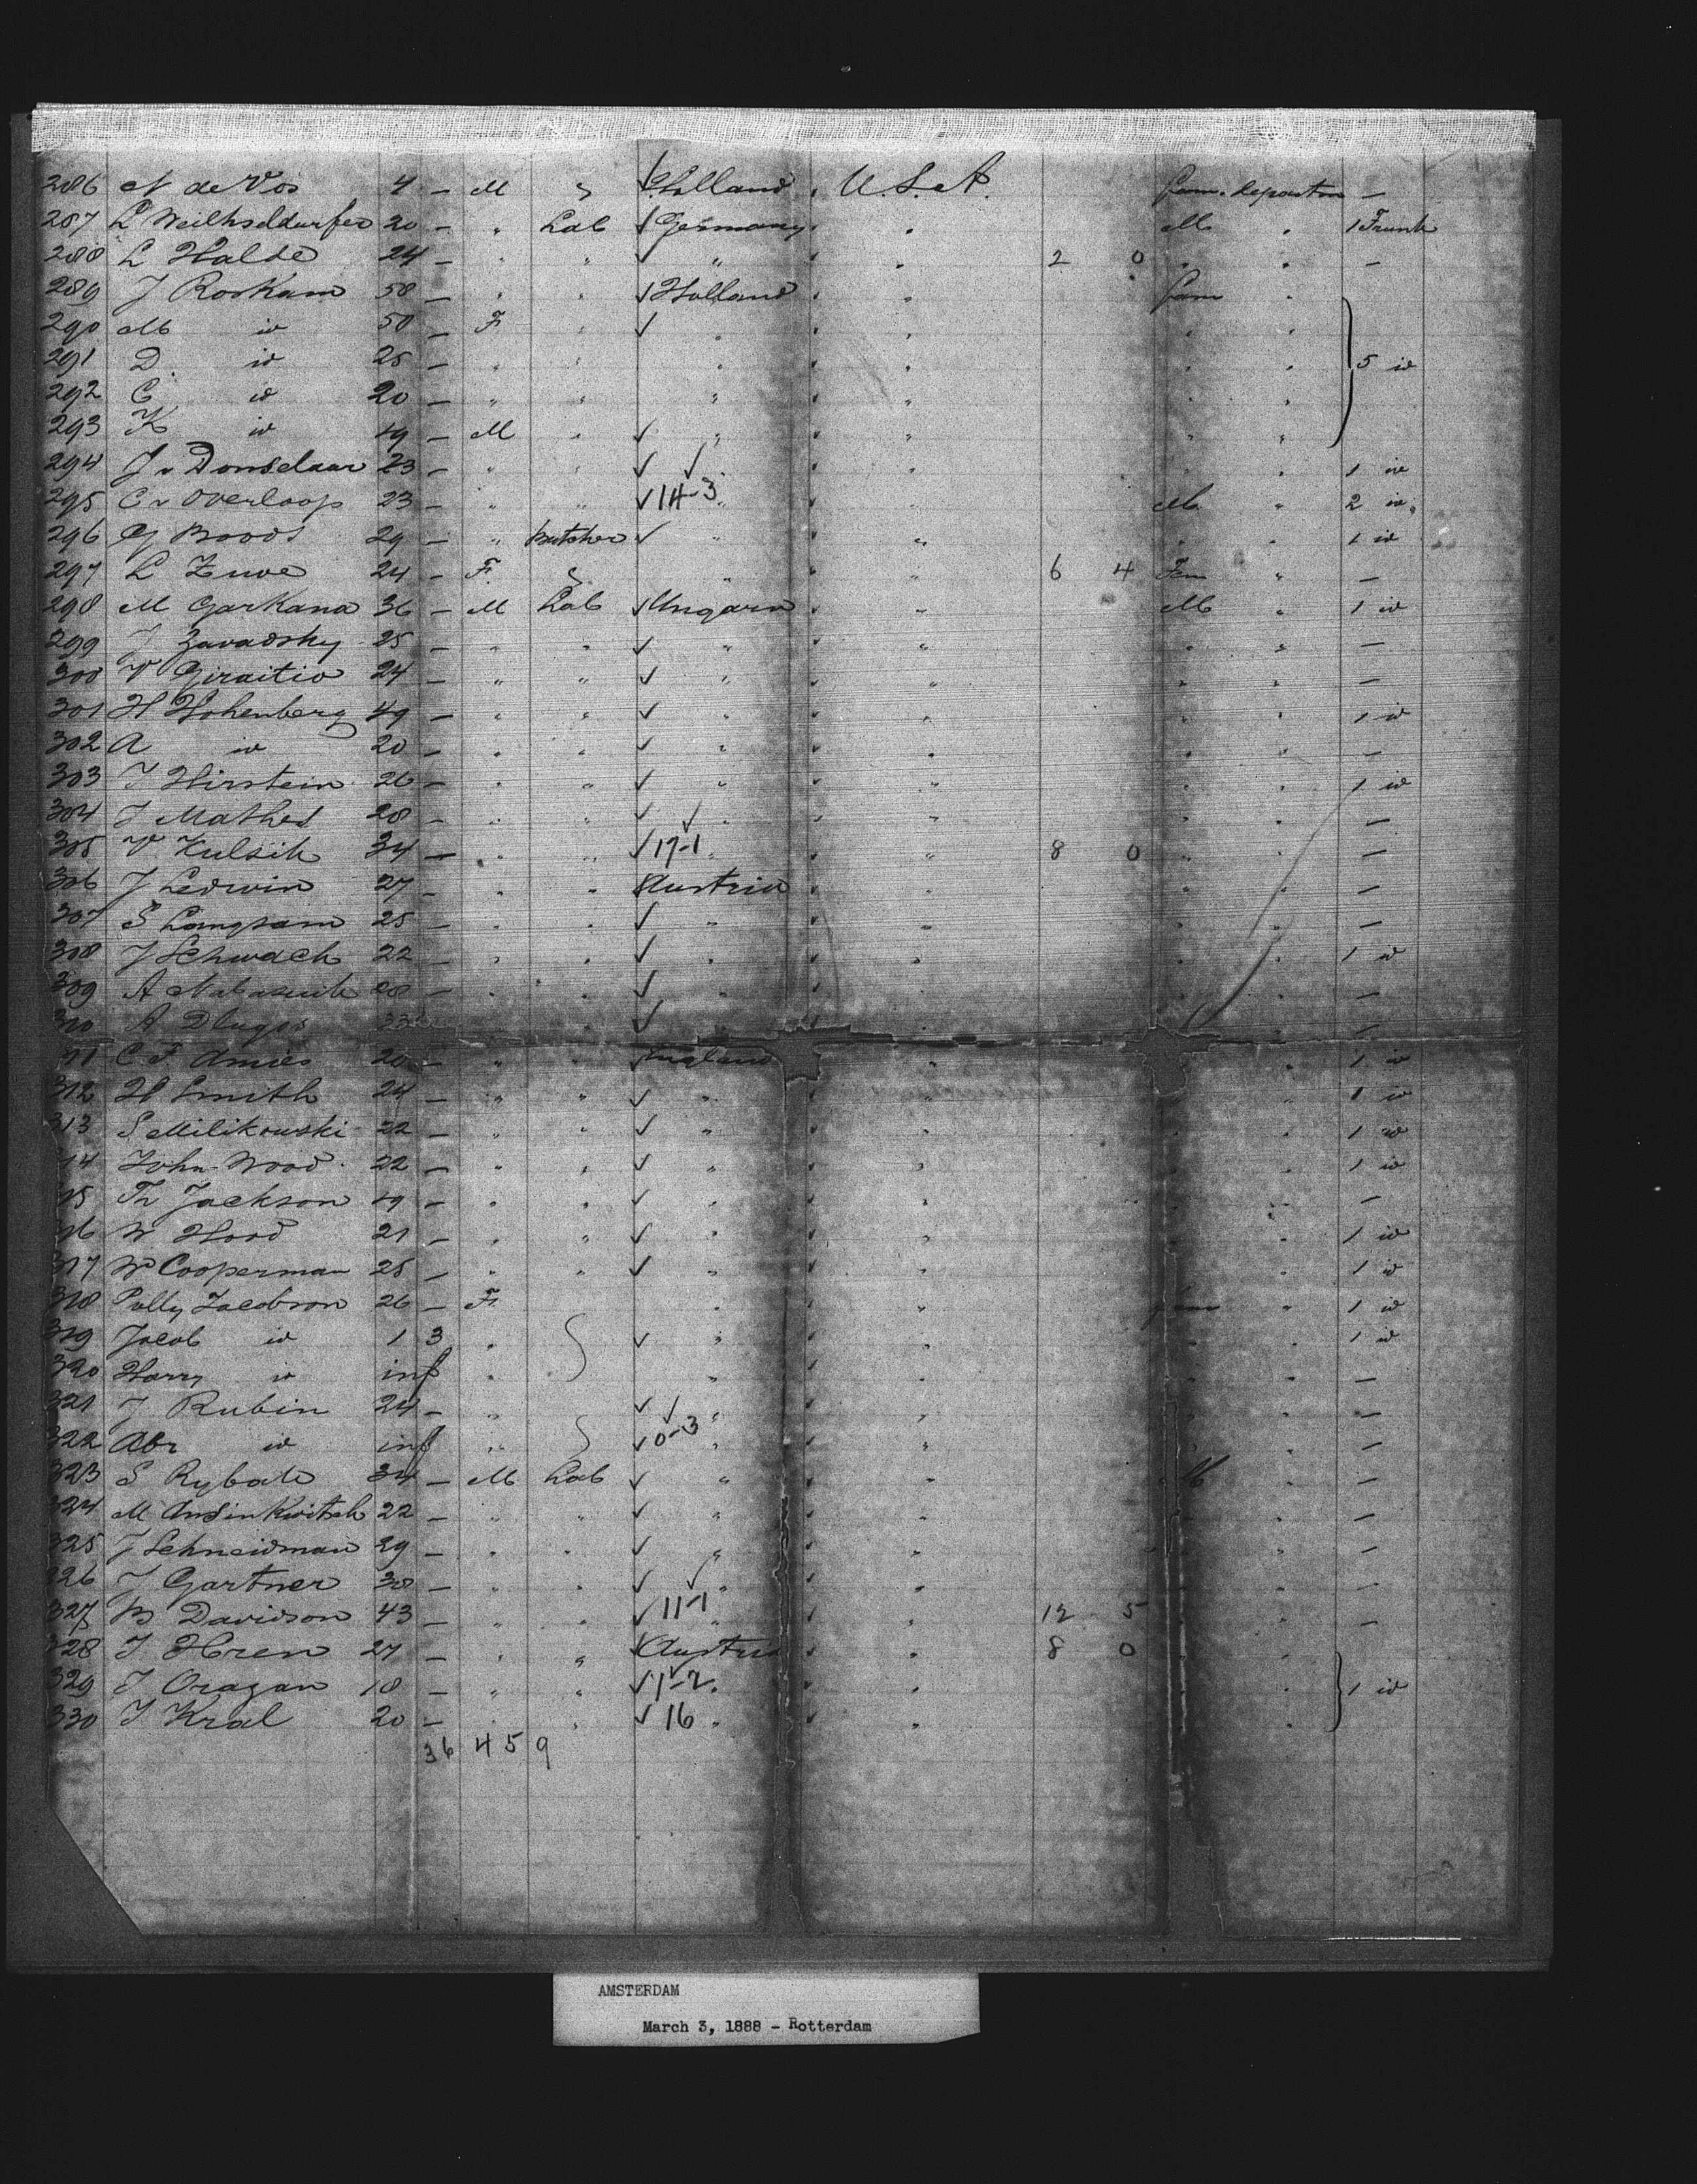 286 N de Vos 4 – M " Holland " U.S.A. fam. departm –
287 L Weilhselddurfer 20 – " Lab Germany " " M " 1 Trunk
288 L Halde 24 – " " " " " 2 0 " " –
289 J Roskam 58 – " " Holland " " fam "
290 M id 50 – F " " " " "
291 D. id 25 – " " " " " " " 5 id
292 C id 20 – " " " " " " "
293 K id 19 – M " " " " " "
294 J v Donselaar 23 – " " " " " " 1 id
295 C v Overloop 23 – " " 14-3 " " M " 2 id
296 G Broods 29 – " Butcher " " " " 1 id
297 L Zuve 24 – F " " " 6 4 Fem " –
298 M Garkana 36 – M Lab Ungarn " " M " 1 id
299 J Zavadsky 25 – " " " " " " " –
300 V Giraitio 24 – " " " " " " " –
301 H Hohenberg 49 – " " " " " " " 1 id
302 A id 20 – " " " " " " " –
303 J Hirstein 26 – " " " " " " " 1 id
304 J Mathes 28 – " " " " " " " –
305 V Kulsik 34 – " " 17-1 " " 8 0 " " –
306 J Ledwin 27 – " " Austria " " " " –
307 S Langsam 25 – " " " " " " " –
308 J Schwach 22 – " " " " " " " 1 id
309 A 28 – " " " " " " –
310 A Dlugos 23 " " " –
11 C F Amies 20 – " " England " " 1 id
312 H Smith 24 – " " " " " 1 id
313 S Milikowski 22 – " " " " " 1 id
14 John Wood 22 – " " " " " 1 id
15 Th Jackson 19 – " " " " " " –
316 W Hood 21 – " " " " " 1 id
317 W Cooperman 25 – " " " " " 1 id
318 Polly Jacobson 26 – F " " fam " 1 id
319 Jacob id 1 3 " " " " " 1 id
320 Harry id inf " " " " " –
321 J Rubin 24 – " " " " –
322 Abr id inf " 0-3 " " " –
323 S Rybak 34 – M Lab " " " M " –
324 M Ansinkwitsch 22 – " " " " " –
325 J Schneidman 29 – " " " " " –
326 J Gartner 30 – " " " " " –
327 B Davidson 43 – " " 11-1 " " 12 5 –
328 J Hren 27 – " " Austria " " 8 0 "
329 J Oragan 18 – " " 1-2 " " " 1 id
330 J Kral 20 – " " 16 " " "
36 4 5 9
AMSTERDAM
March 3, 1888 - Rotterdam